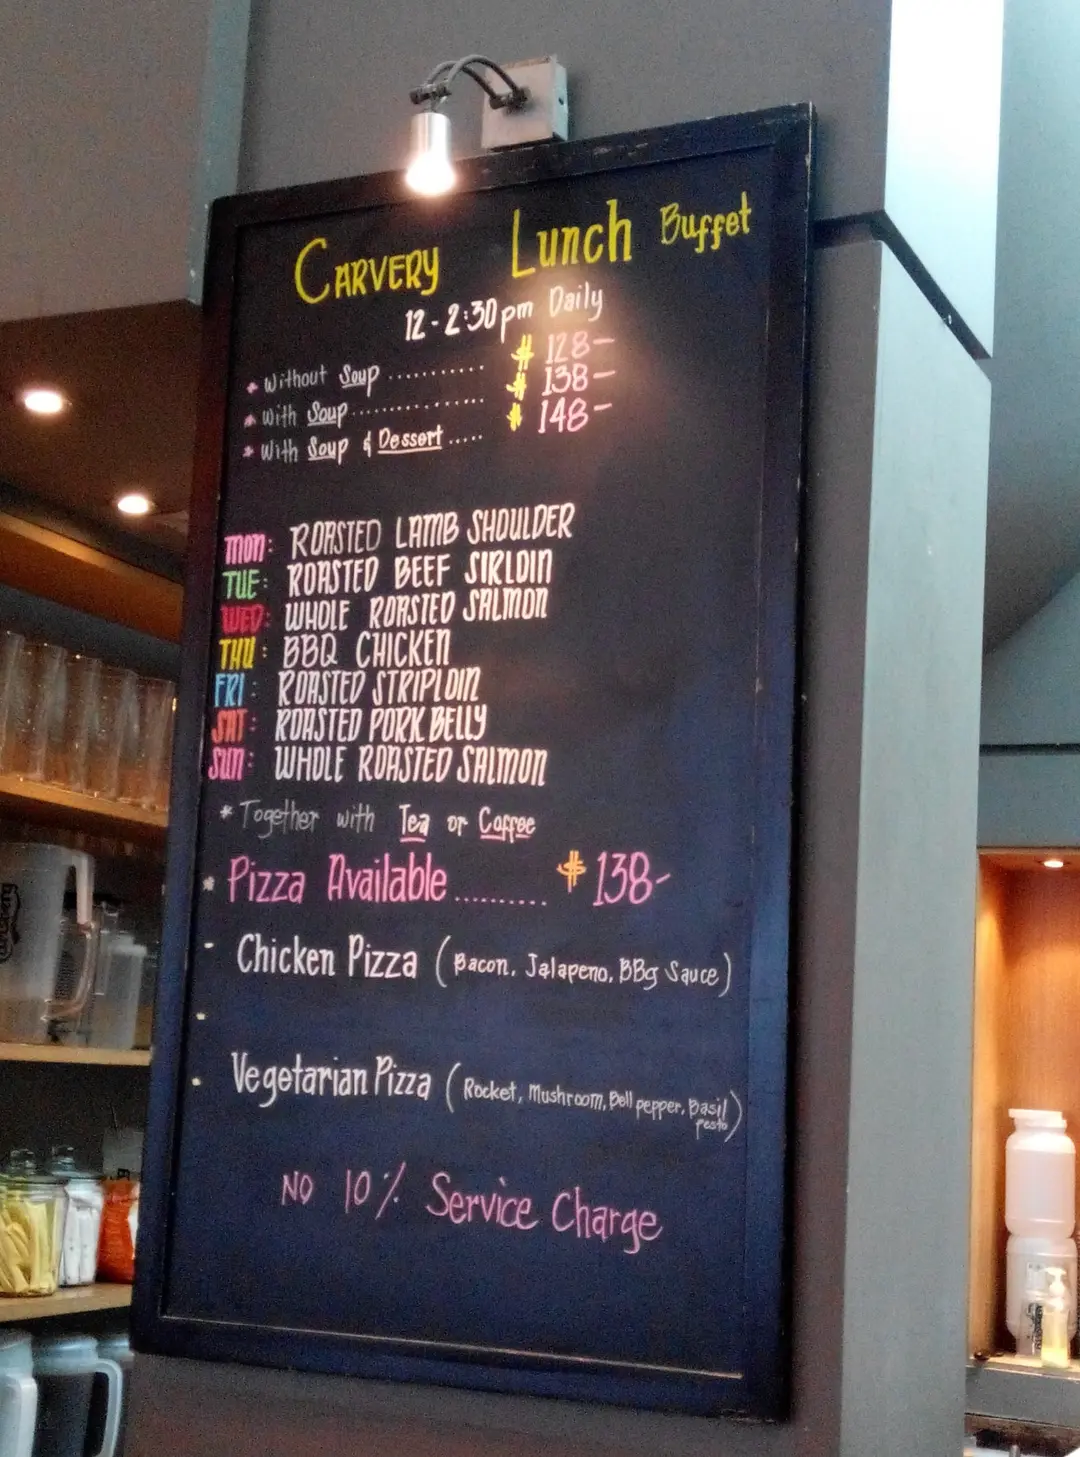 CARVERY Lunch Buffet
12 - 2:30pm Daily
* Without Soup ........... $ 128-
* With Soup ............... $ 138-
* With Soup & Dessert ..... $ 148-
MON: ROASTED LAMB SHOULDER
TUE: ROASTED BEEF SIRLOIN
WED: WHOLE ROASTED SALMON
THU: BBQ CHICKEN
FRI: ROASTED STRIPLOIN
SAT: ROASTED PORK BELLY
SUN: WHOLE ROASTED SALMON
* Together with Tea or Coffee
* Pizza Available .......... $ 138-
- Chicken Pizza (Bacon, Jalapeno, BBq Sauce)
-
- Vegetarian Pizza (Rocket, Mushroom, Bell pepper, Basil
pesto)
NO 10% Service Charge